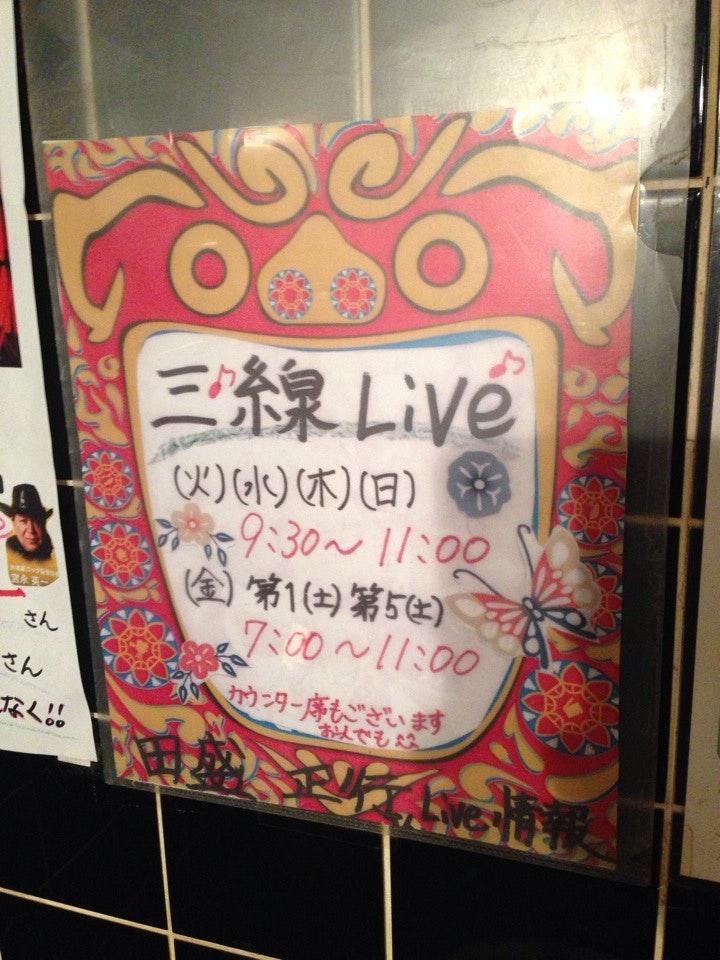 三線 Live
(火)(水)(木)(日)
9:30～11:00
(金) 第1(土) 第5(土)
7:00～11:00
カウンター席もございます
お一人でも
田盛 正行 Live 情報
さん
さん
なく!!